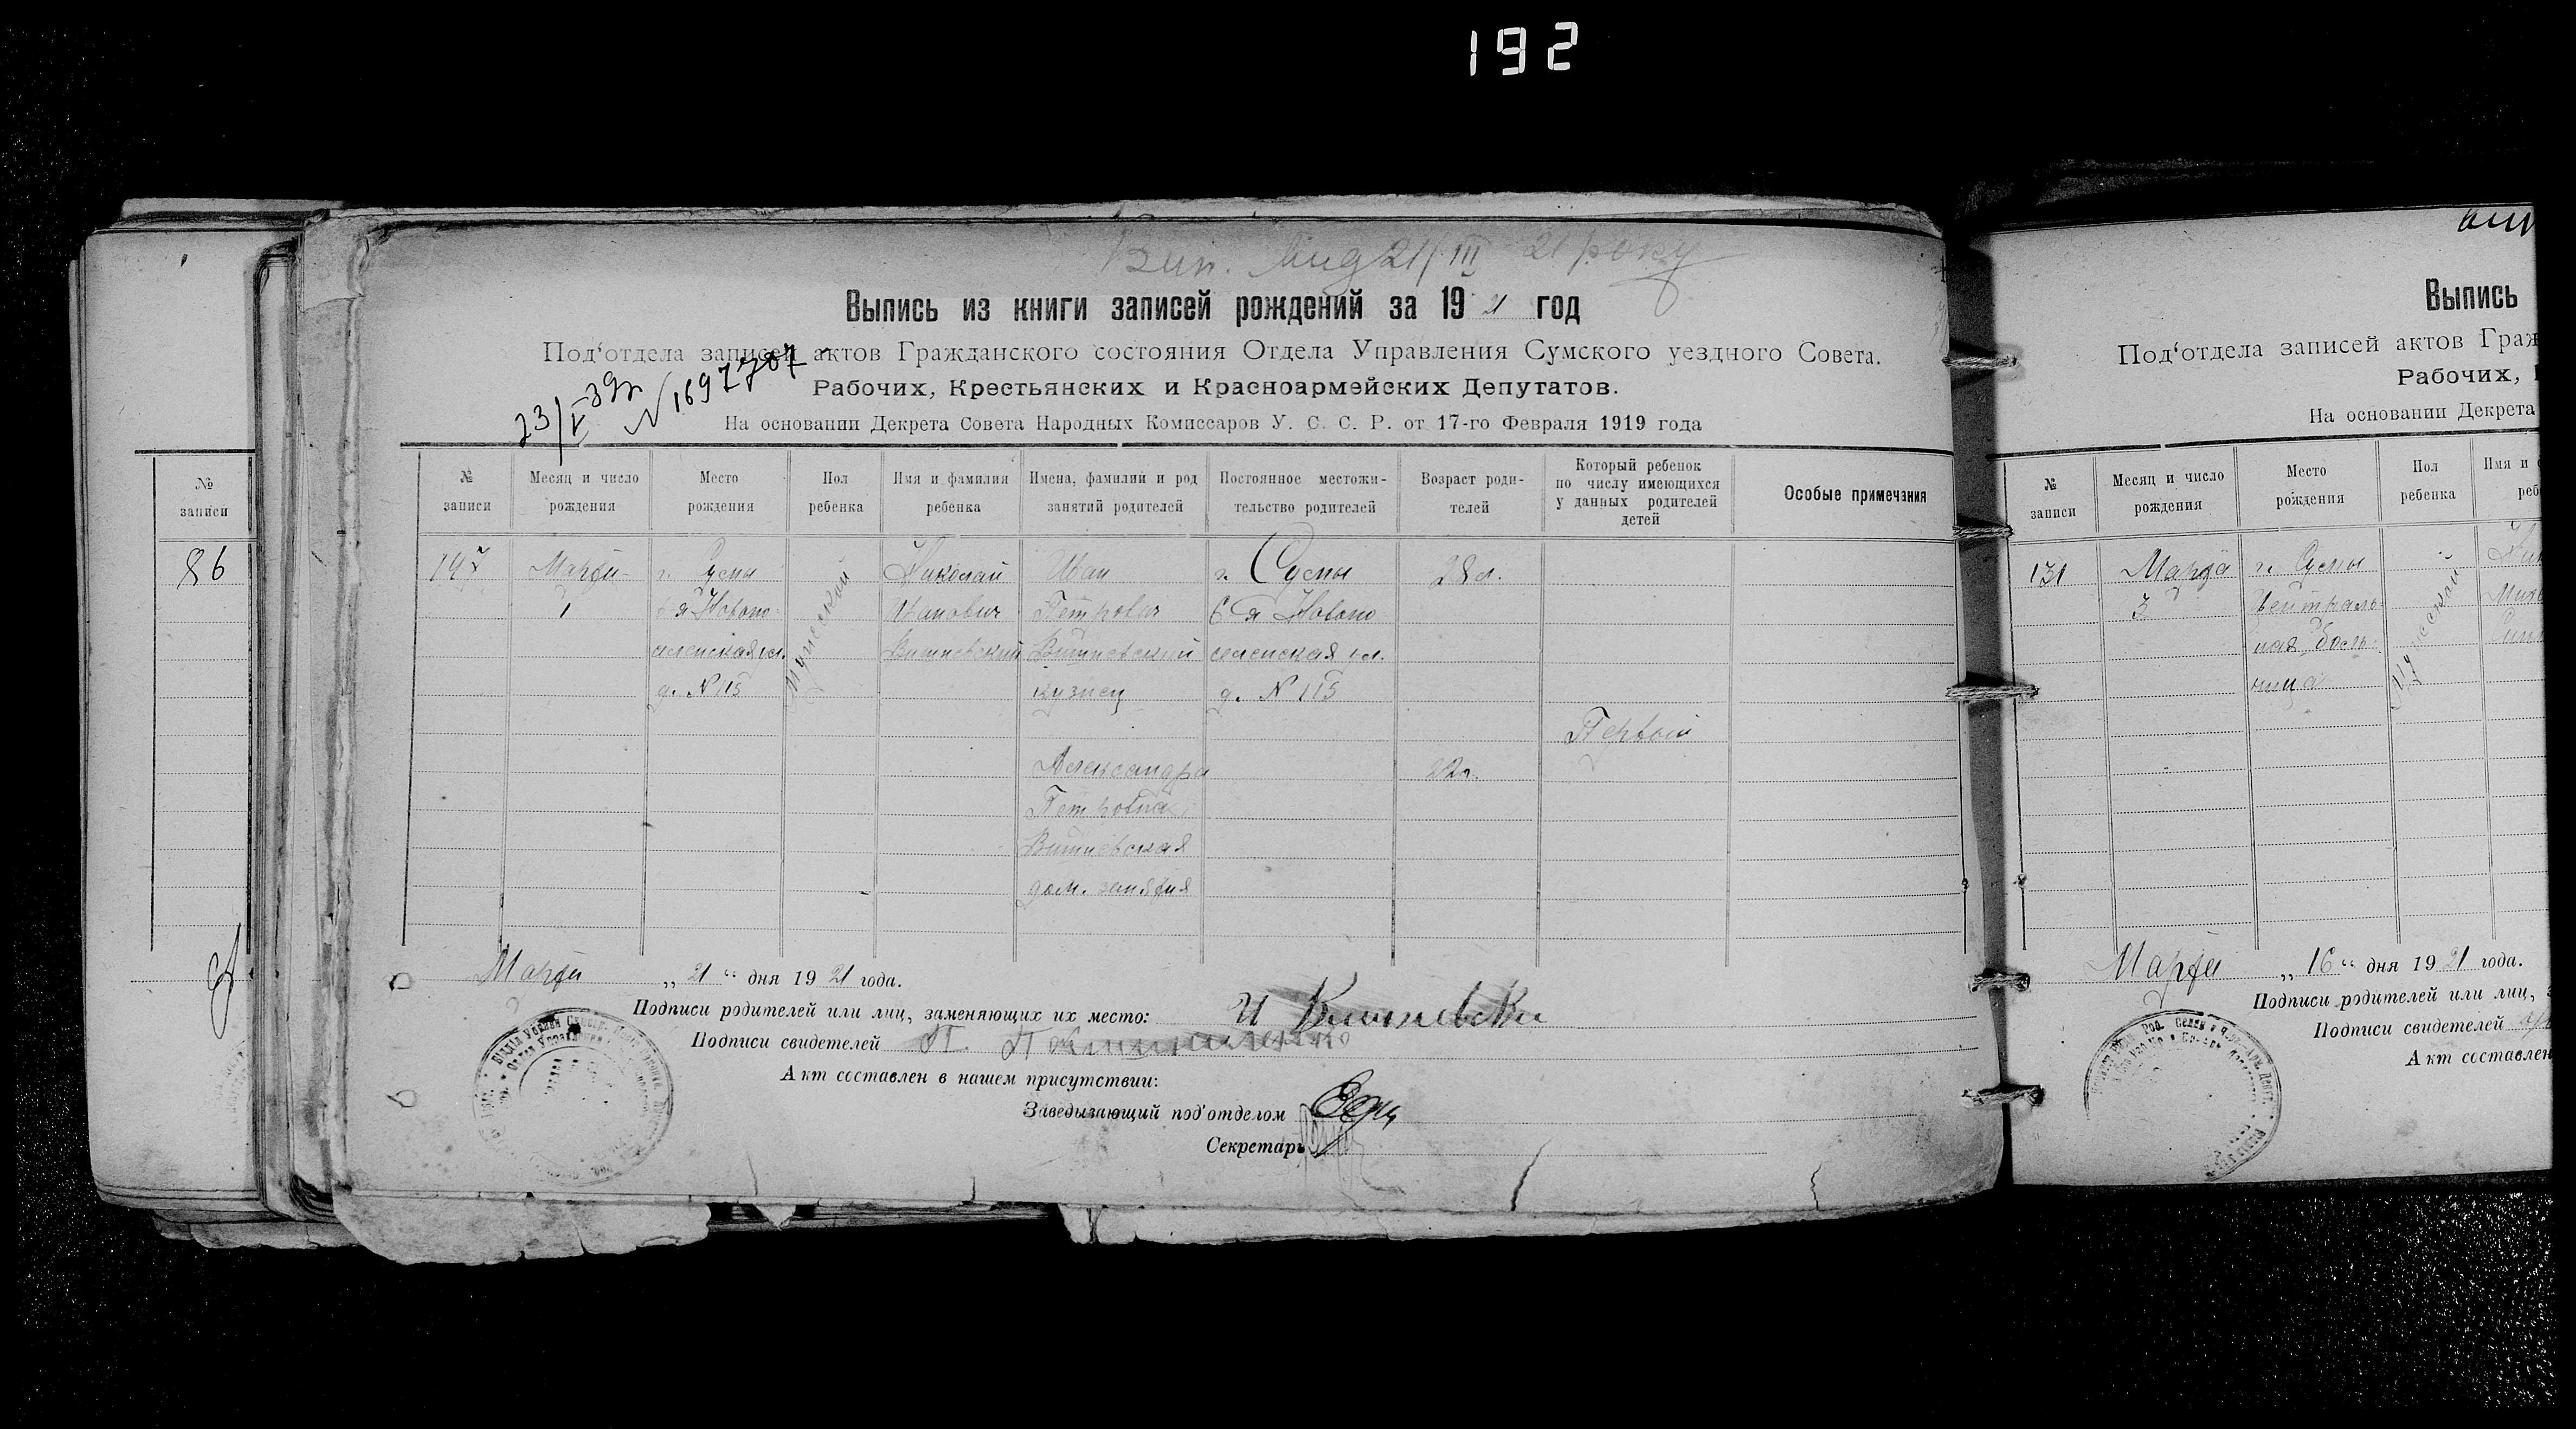 192
Вип. Вид 21/III 21 року
Выпись из книги записей рождений за 1921 год
Под‘отдела записей актов Гражданского состояния Отдела Управления Сумского уездного Совета.
Рабочих, Крестьянских и Красноармейских Депутатов.
На основании Декрета Совета Народных Комиссаров У. С. С. Р. от 17-го Февраля 1919 года
23/V 39г N 1697707
№ записи
Месяц и число рождения
Место рождения
Пол ребенка
Имя и фамилия ребенка
Имена, фамилии и род занятий родителей
Постоянное местожительство родителей
Возраст родителей
Который ребенок по числу имеющихся у данных родителей детей
Особые примечания
197
Марта
1
г. Сумы
6 я Новопо
селенская ул.
д. N 115
Мужеский
Николай
Иванович
Вишневский
Иван
Петрович
Вишневский
кузнец
Александра
Петровна
Вишневская
дом. занятия
г. Сумы
6 я Новопо
селенская ул.
д. N 115
28 л.
22 л.
Первый
Марта „21“ дня 1921 года.
Подписи родителей или лиц, заменяющих их место: И Вишневски
Подписи свидетелей П.
Акт составлен в нашем присутствии:
Заведывающий под‘отделом
Секретарь
№
записи
86
Выпись
Под‘отдела записей актов Граж
Рабочих,
На основании Декрета
№ записи
Месяц и число рождения
Место рождения
Пол ребенка
Имя и
реб
131
Марта
3
г. Сумы
Централь
ная боль
ница
Мужеский
Ник
Марта „16“ дня 1921 года.
Подписи родителей или лиц,
Подписи свидетелей
Акт составлен